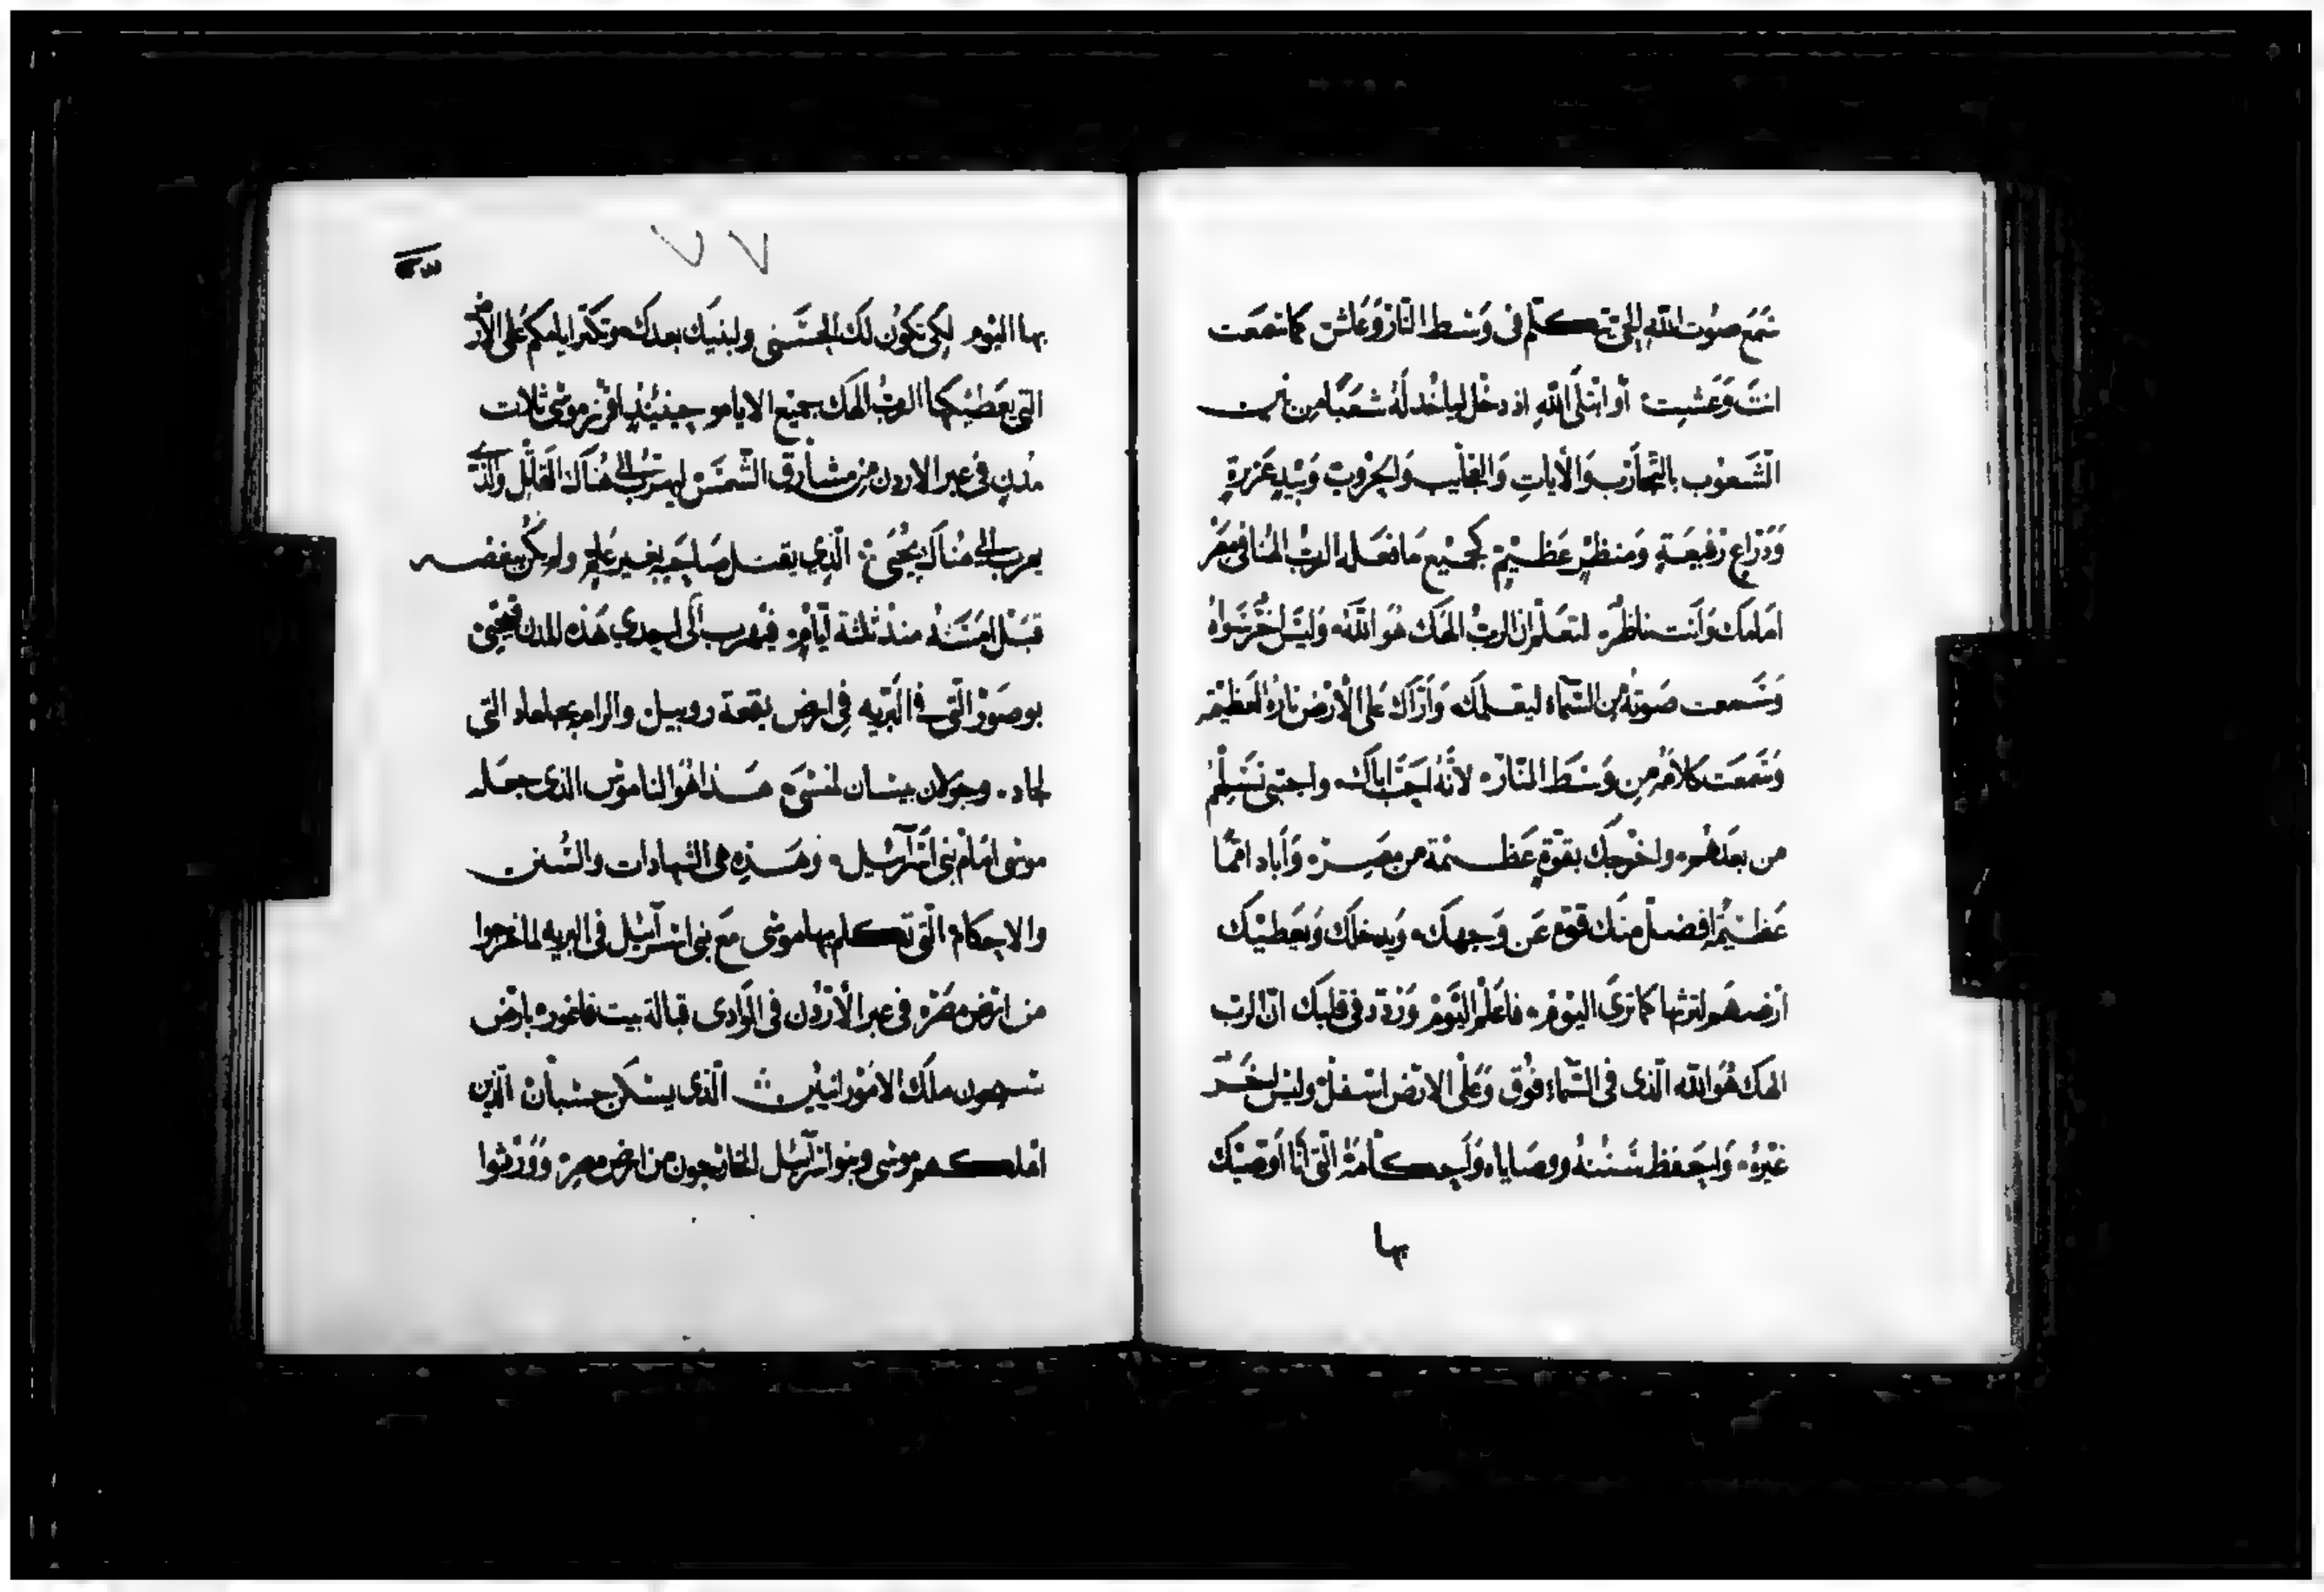 سَمِعَ صوُت الله الحيّ تتكلّم في وَسَط النّار وَعَاش كما سَمِعَت
انتَ وَعَشِت أو ابتلَى الله اذ دخل لياخُد لَهُ شعبًا من بين
الشَعوُب بالتجّارب وَالأيات وَالعجَايب وَالحرُوب وَبيَدٍ عَزيزةٍ
وَدرَاعٍ رَفيعَةٍ وَمنظرٍ عَظيمٍ كجَميع مَا فعَله الربّ الهنا في مصر
امَامك وَأنت ناظرَه لتعَلم ان الربّ الهَك هوَ الله وَليسَ اخر سَواهُ
وَسَمعت صَوتهُ من السّماء ليعَلمك وَأرَاك عَلى الأرَض نارهُ العَظيمَه
وَسَمعَت كلامَه من وَسَط النّارَ لأنّهُ احَبّ اباك واجتبى نَسَلهُم
من بعدَهُم واخرجَك بقوّةٍ عَظيمَة من مصِر وَأباد اممًا
عَظيمَة افضلْ منَك قوّه عَن وَجهك وَيدخلك وَيعَطيَك
أرَضهَم لترثها كما ترىَ اليوَمْ فاعَلم اليَوَمْ وَرَدّد في قلبَك انّ الربّ
الهك هُو الله الّذي في السّماء فوُق وَعَلى الارَض اسَفل وليسَ اخَر
غيَرهُ وَاحَفظ سَننهُ ووصَاياه وَأحكامهُ الّتي أنَا أوَصيَك
بها
بها اليَوم لكي تكوُن لك الحُسَنى ولبنيَك بعدَك وتكتر ايامكم عَلى الأرض
التي يعَطيَكها الربّ الهَك جميَع الايام وحينيُدٍ افرَز موسَى تلات
مُدنٍ في عبر الاردن من مشارق الشَمَس ليهَرب الي هُناك القاتل والّذي
يهرب الي هُناك يحُيَى الّذي يقتل صَاحبَه بغيَر عِلمٍ ولم يكن يبغضه
قبَل امَسَنهُ منذ ثلثة أيّامٍ فيَهرب الَى احدى هَذه المدن فيحَيى
بوصَوَر الّتي في البَرّيه في ارض بقعة روبيل والرامه بجلعاد التي
لجاد وجولان بيسان لمنسَى هَذا هوَ الناموَس الذي جعله
موسَى امَام بَني اسَرآيل وَهَذه هي الشهادات والسُنن
والاحكام الّتي تكلم بها موسَى مَع بَني اسَرآيل في البريه لما خرجوا
من ارَض مصَر في عبر الأردُن في الوَادى قبالة بيت فاغوره بارَض
سيحون ملك الامُورانييَن الّذي يسَكن حسَبان الّذين
اهلكهم موسَى وبنو اسَرآيَل الخارَجون من ارض مصِر وَوَرَثوا